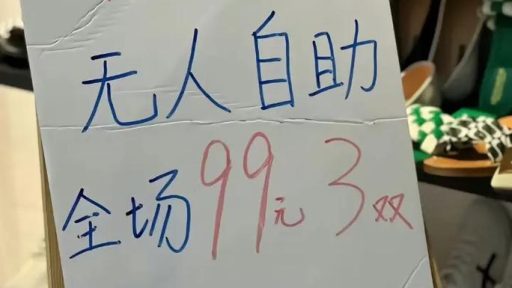 无人自助
全场99元3双